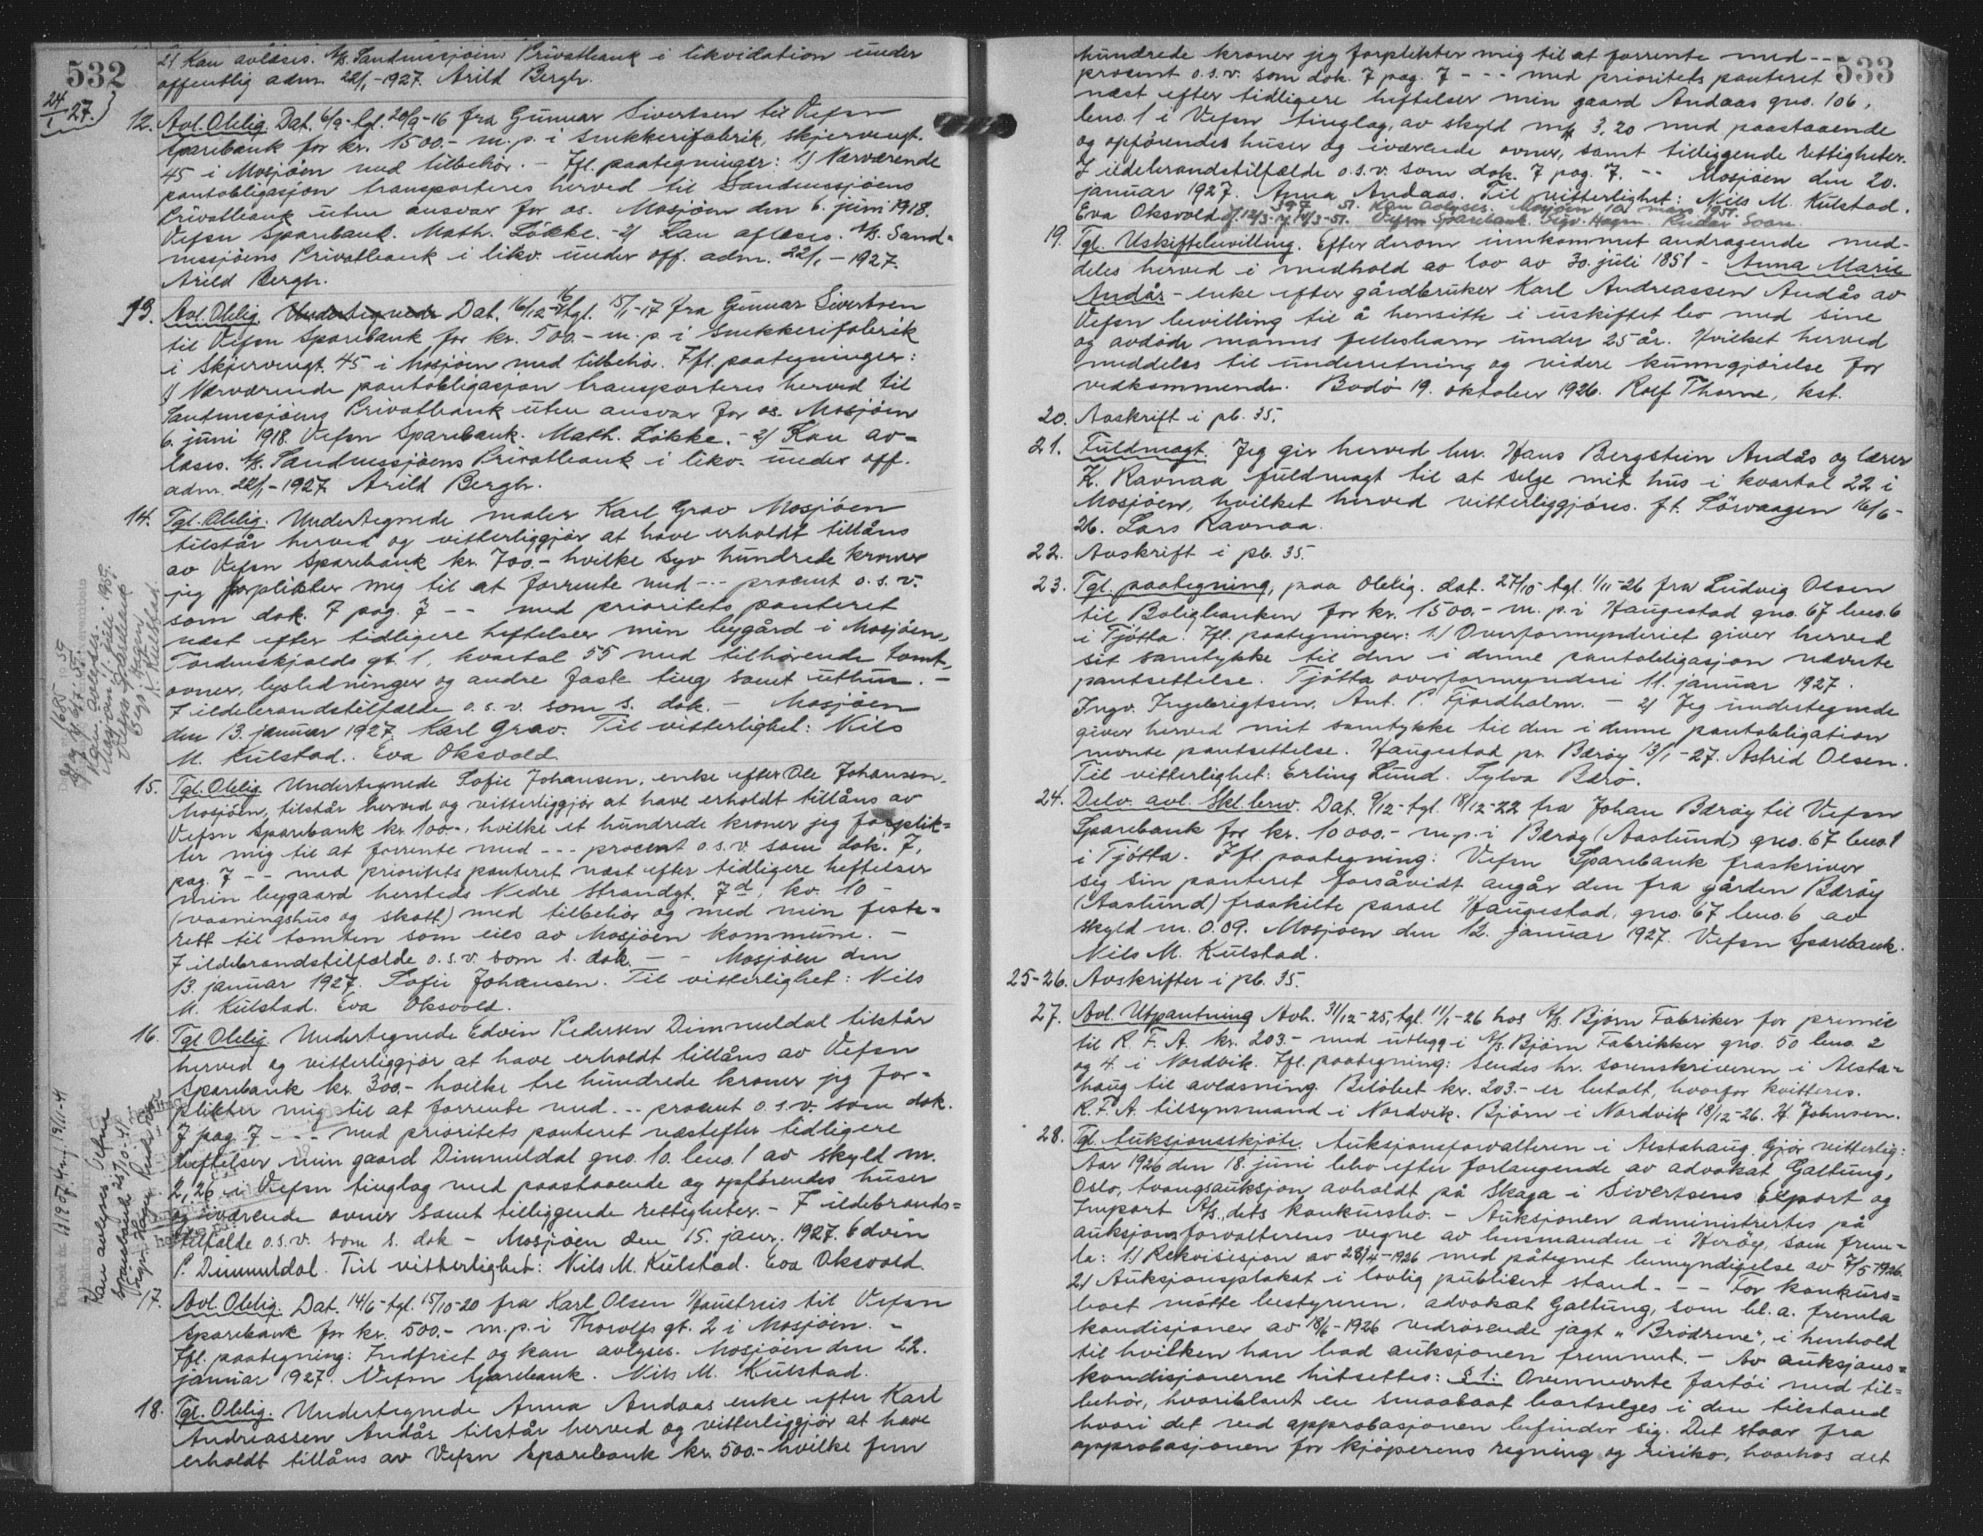 532
24/1 27.
2) Kan avlæses. A/S Sandnessjøens Privatbank i likvidation under
offentlig adm. 22/1-1927. Arild Bergh.
12. Avl. Oblig. Dat. 6/9- tgl. 20/9-16 fra Gunnar Sivertsen til Vefsn
Sparebank for kr. 1500.- m. p. i snekkerifabrik, Skjervengt.
45 i Mosjøen med tilbehör. - Ifl. paategninger: 1.) Nærværende
pantobligasjon transporteres herved til Sandnessjøens
Privatbank uten ansvar for os. Mosjøen den 6. juni 1918.
Vefsn Sparebank. Math. Løkke. - 2) Kan aflæses. A/S Sand-
nessjøens Privatbank i likv. under off. adm. 22/1-1927.
Arild Bergh.
13. Avl. Oblig. Undertegnede Dat. 16/12-16 tgl. 15/1-17 fra Gunnar Sivertsen
til Vefsn Sparebank for kr. 500.- m. p. i snekkerifabrik
i Skjervengt. 45 i Mosjøen med tilbehör. Ifl. paategninger:
1) Nærværende pantobligasjon transporteres herved til
Sandnessjøens Privatbank uten ansvar for os. Mosjøen
6. juni 1918. Vefsn Sparebank. Math. Løkke. - 2) Kan av-
læses. A/S. Sandnessjøens Privatbank i likv. under off.
adm. 22/1-1927 Arild Bergh.
14. Tgl. Oblig. Undertegnede maler Karl Grav Mosjöen
tilstår herved og vitterliggjör at have erholdt tillåns
av Vefsn Sparebank kr. 700.- hvilke syv hundrede kroner
jeg forplikter mig til at forrente med --- procent o.s.v.
som dok. 7 pag. 7 -- med prioritets panteret
næst efter tidligere heftelser min bygård i Mosjøen,
Tordenskjolds gt. 1, kvartal 55 med tilhörende tomt,
ovner, lysledninger og andre faste ting samt uthus. -
I ildebrandstilfælde o.s.v. som s. dok. - Mosjøen
den 13. januar 1927. Karl Grav. Til vitterlighet: Nils
M. Kulstad. Eva Oksvold.
15. Tgl. Oblig. Undertegnede Sofie Johansen, enke efter Ole Johansen,
Mosjöen, tilstår herved og vitterliggjör at have erholdt tillåns av
Vefsn Sparebank kr. 100.-, hvilke et hundrede kroner jeg forplik-
ter mig til at forrente med --- procent o.s.v. som dok. 7,
pag. 7 -- med prioritets panteret næst efter tidligere heftelser
min bygaard hersteds Nedre Strandgt. 7d, kv. 10 -
(vaaningshus og skott) med tilbehör og med min feste-
rett til tomten som eies av Mosjøen kommune. -
I ildebrandstilfælde o.s.v. som s. dok. - - Mosjøen den
13. januar 1927. Sofie Johansen. Til vitterlighet: Nils
M. Kulstad. Eva Oksvold.
16. Tgl. Oblig. Undertegnede Edvin Pedersen Dimmeldal tilstår
herved og vitterliggjör at have erholdt tillåns av Vefsn
Sparebank kr. 300.- hvilke tre hundrede kroner jeg for-
plikter mig til at forrente med --- procent o.s.v. som dok.
7 pag. 7 --- med prioritets panteret næstefter tidligere
heftelser min gaard Dimmeldal gno. 10. bno. 1 av skyld m.
2,26 i Vefsn tinglag med paastaaende og opförendes huser
og iværende ovner samt tilliggende rettigheter. - I ildebrands-
tilfælde o.s.v. som s. dok - Mosjöen den 15. janr. 1927. Edvin
P. Dimmeldal. Til vitterlighet: Nils M. Kulstad. Eva Oksvold.
17. Avl. Oblig. Dat. 14/6- tgl. 15/10-20 fra Karl Olsen Haustreis til Vefsn
Sparebank for kr. 500.- m. p. i Thorolfs gt. 2 i Mosjøen. -
Ifl. paategning: Indfriet og kan avlyses. Mosjøen den 22.
januar 1927. Vefsn Sparebank. Nils M. Kulstad.
18. Tgl. Oblig. Undertegnede Anna Andaas enke efter Karl
Andreassen Andås tilstår herved og vitterliggjör at have
erholdt tillåns av Vefsn Sparebank kr. 500.- hvilke fem
533
hundrede kroner jeg forplikter mig til at forrente med --
procent o.s.v. som dok. 7 pag. 7 --- med prioritets panteret
næst efter tidligere heftelser min gaard Andaas gno. 106,
bno. 1 i Vefsn tinglag, av skyld mrk 3.20 med paastaaende
og opførendes huser og iværende ovner, samt tilliggende rettigheter.
I ildebrandstilfælde o.s.v. som dok. 7 pag. 7. -- Mosjøen den 20.
januar 1927. Anna Andaas. Til vitterlighet: Nils M. Kulstad.
Eva Oksvold. Kan avlyses. Mosjøen 10. mars 1951.
Vefsn Sparebank. Sigv. Hagen Reidar Svan.
19. Tgl. Uskiftebevilling. Efter derom innkommet andragende med-
deles herved i medhold av lov av 30. juli 1851 - Anna Marie
Andås - enke efter gårdbruker Karl Andreassen Andås av
Vefsn bevilling til å hensitte i uskiftet bo med sine
og avdøde manns fellesbarn under 25 år. Hvilket herved
meddeles til underretning og videre kunngjörelse for
vedkommende. Bodö 19. oktober 1926. Rolf Thorne, kst.
20. Avskrift i pb. 35.
21. Fuldmagt. Jeg gir herved hr. Hans Bergstein Andås og lærer
K. Ravnaa fuldmagt til at selge mit hus i kvartal 22 i
Mosjøen, hvilket herved vitterliggjöres. f.t. Sörvaagen 16/6-
26. Lars Ravnaa.
22. Avskrift i pb. 35
23. Tgl. paategning, paa oblig. dat. 27/10- tgl. 1/11-26 fra Ludvig Olsen
til Boligbanken for kr. 1500.- m. p. i Haugestad gno. 67 bno. 6
i Tjøtta. Ifl. paategninger: 1.) Overformynderiet giver herved
sit samtykke til den i denne pantobligasjon nævnte
pantsettelse. Tjøtta overformynderi 11. januar 1927.
Ingv. Ingebrigtsen, Ant. P. Fjordholm. - 2) Jeg undertegnede
giver herved mit samtykke til den i denne pantobligation
nævnte pantsettelse. Haugestad pr. Bærøy 13/1-27. Astrid Olsen.
Til vitterlighet: Erling Lund. Sylva Bærö.
24. Delv. avl. skl. brev. Dat. 9/12- tgl. 18/12-22 fra Johan Bærøy til Vefsn
Sparebank for kr. 10 000.- m. p. i Bærøy (Aaslund) gno. 67 bno. 1
i Tjøtta. Ifl. paategning: Vefsn Sparebank fraskriver
sig sin panteret forsåvidt angår den fra gården Bærøy
(Aaslund) fraskilte parsel Haugestad, gno. 67 bno. 6 av
skyld m. 0.09. Mosjøen den 12. januar 1927. Vefsn Sparebank.
Nils M. Kulstad.
25-26. Avskrifter i pb. 35.
27. Avl. Utpantning Avh. 31/12-25, tgl. 11/1-26 hos A/S. Bjørn Fabriker for premie
til R. F. A. kr. 203.- med utlegg i A/S Bjørn Fabrikker gno. 50 bno. 2
og 4. i Nordvik. Ifl. paategning: Sendes hr. sorenskriveren i Alsta-
haug til avlæsning. Beløbet kr. 203.- er betalt, hvorfor kvitteres.
R.F.A. tilsynsmand i Nordvik. Bjørn i Nordvik 18/12-26. H. Johnsen.
28. Tgl. Auksjonsskjöte. Auksjonsforvalteren i Alstahaug. Gjör vitterlig:
Aar 1926 den 18. juni blev efter forlangende av advokat Galtung,
Oslo, tvangsauksjon avholdt på Skaga i Sivertsens Export og
Import A/S., dets konkursbo. - Auksjonen administrertes på
auksjonsforvalterens vegne av lensmanden i Herøy, som frem-
la: 1) Rekvisisjon av 28/4-1926 med påtegnet bemyndigelse av 7/5-1926.
2) Auksjonsplakat i lovlig publisert stand. - - For konkurs-
boet møtte bestyreren, advokat Galtung, som bl. a. fremla
kondisjoner av 18/6-1926 vedrørende jagt "Brödrene", i henhold
til hvilken han bad auksjonen fremmet. - Av auksjons-
kondisjonerne hitsettes: § 1: Ovennevnte fartöi med til-
behör, hvoriblant en snaabaat bortselges i den tilstand
hvori det ved approbasjonen befinder sig. Det staar fra
approbasjonen for kjøperens regning og risiko, hvorhos det